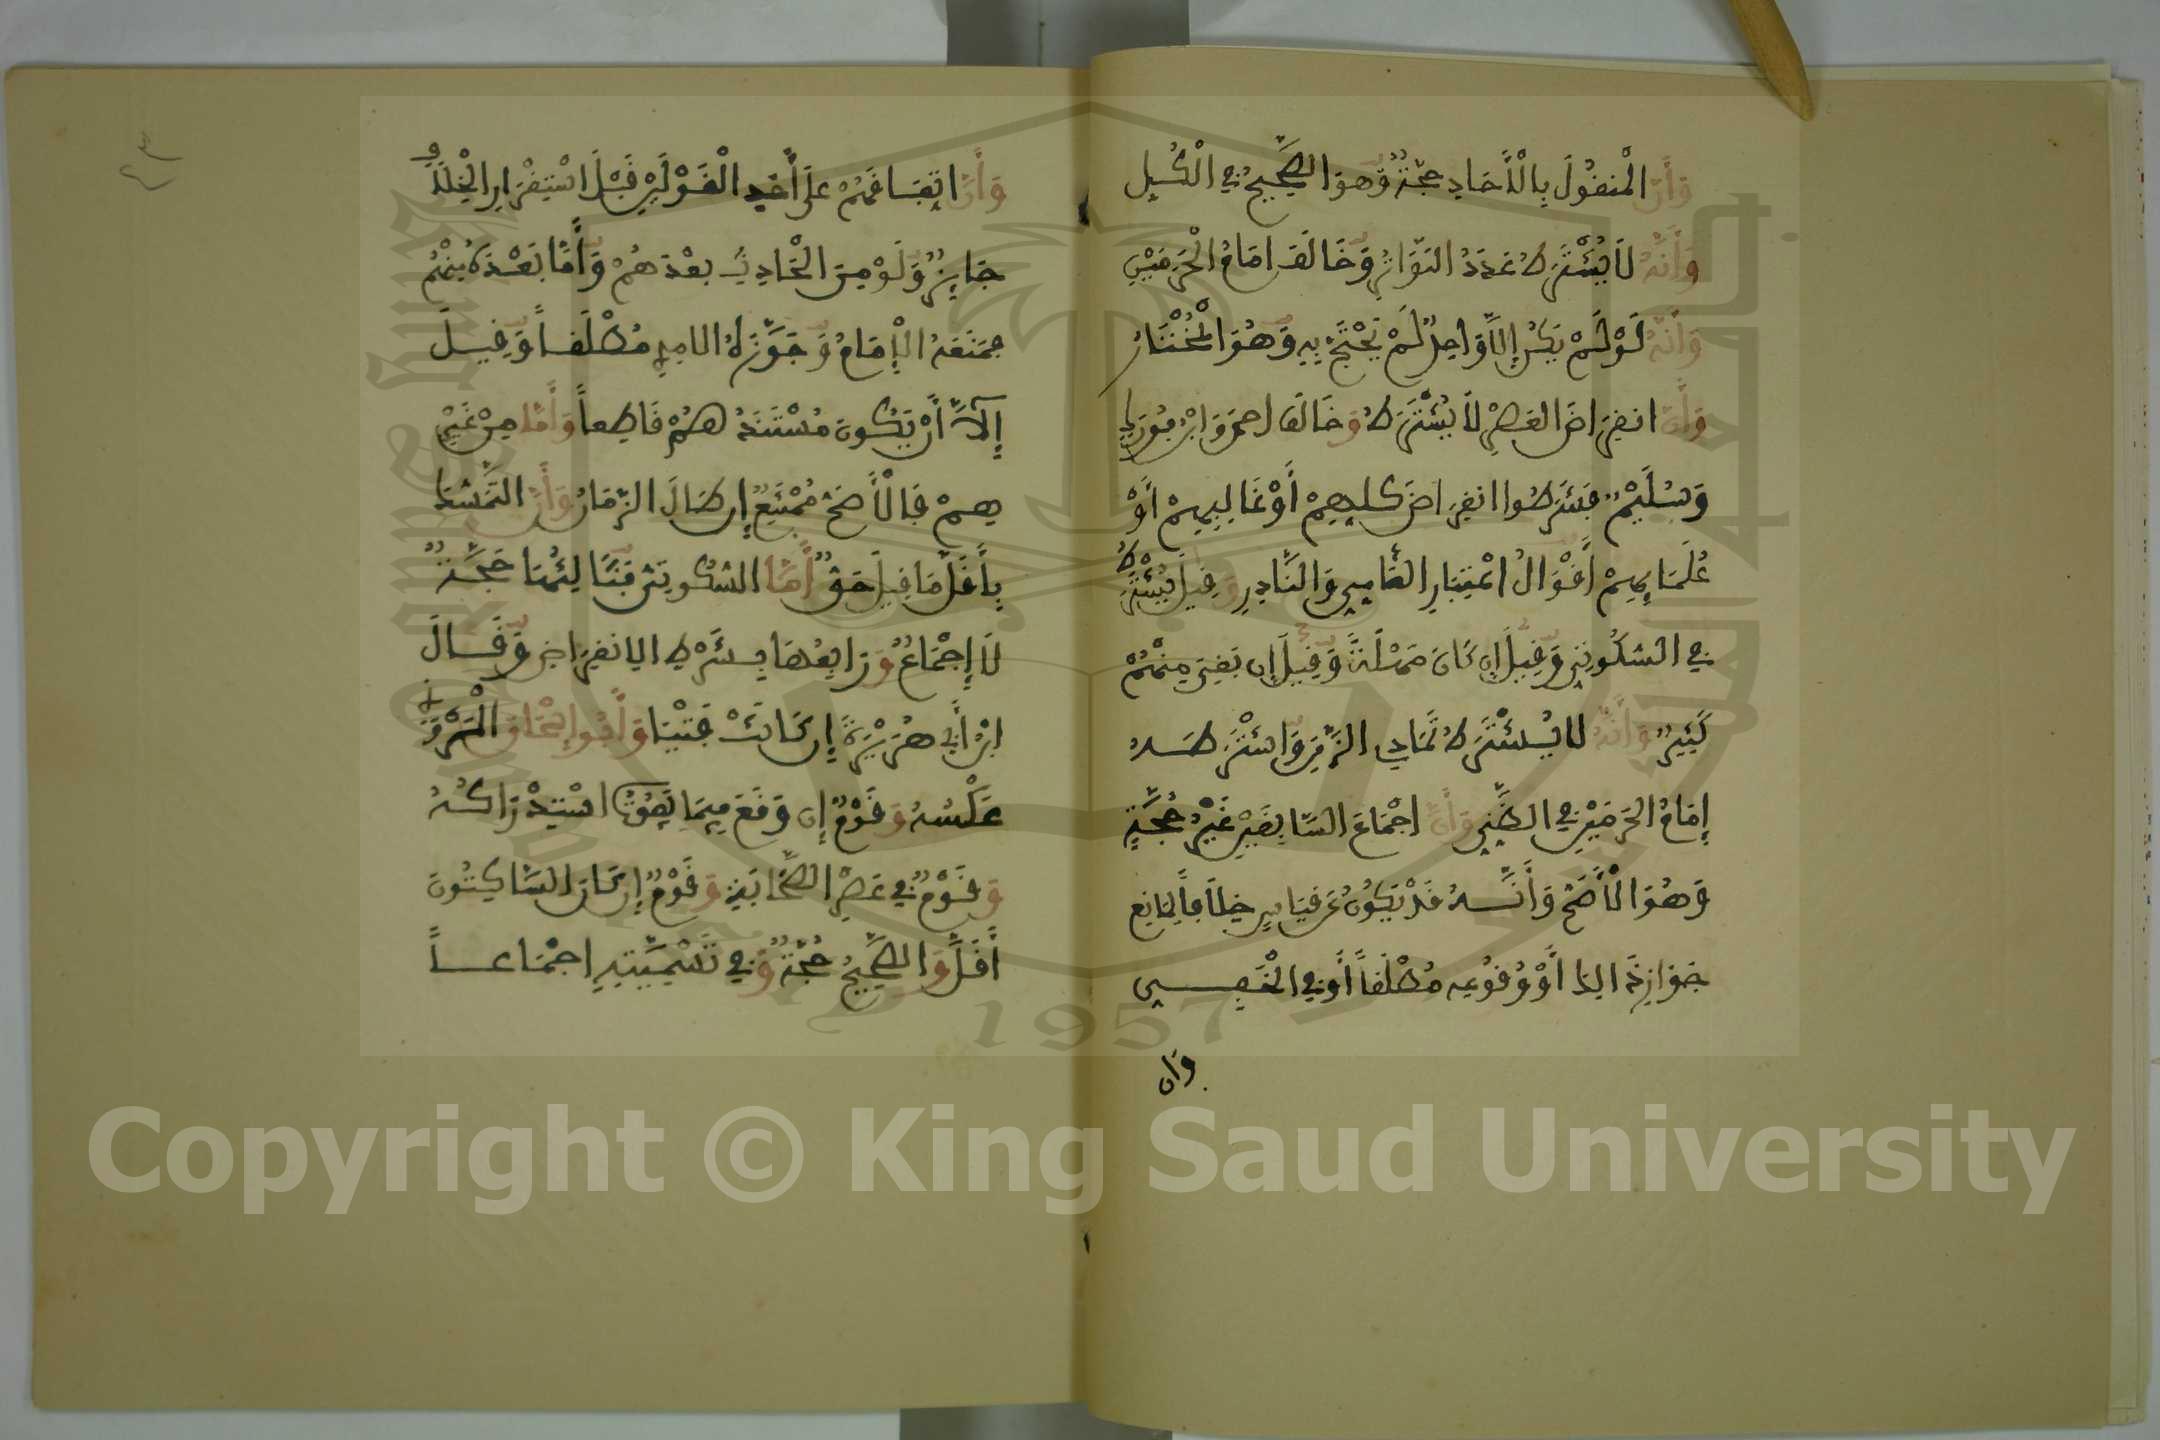 وَأَنَّ الْمَنقُولَ بِالْأَحَادِ حُجَّةٌ وَّهُوَ الصَّحِيحُ فِي الْكُلِّ
وَأَنَّهُ لَا يُشْتَرَطُ عَدَدُ التَّوَاتُرِ وَخَالَفَ امَامُ الْحَرَمَيْنِ
وَأَنَّهُ لَوْ لَمْ يَكُنْ إِلَّا وَاحِدٌ لَّمْ يُحْتَجَّ بِهِ وَهُوَ الْمُخْتَارُ
وَأَنَّ انقِرَاضَ العَصْرِ لَا يُشْتَرَطُ وَخَالَفَ احمد وَابْنُ فُورَكٍ
وَسُلَيْمٌ فَشَرَطُوا انقِرَاضَ كلِهِمْ أَوْ غَالِبِهِمْ أَوْ
عُلَمَايِهِمْ أَقْوَالُ اعْتِبَارِ العَامِيِّ وَالنَّادِرِ وَقِيلَ يُشْتَرَطُ
فِي السُّكُوتِي وَقِيلَ إِن كَانَ مَهْلَةً وَقِيلَ إِن بَقِيَ مِنْهُمْ
كَثِيرٌ وَأَنَّهُ لا يُشْتَرَطُ تَمَادِي الزَّمَنِ وَاشْتَرَطَهُ
إِمَامُ الحَرَمَيْنِ فِي الظَّنِّي وَأَنَّ اجْمَاعَ السَّابِقِينَ غَيْرُ حُجَّةٍ
وَهُوَ الْأَصَحُّ وَأَنَّهُ قَدْ يَكُونُ عَن قِيَاسٍ خِلَافاً لِمَانِعِ
جَوَازِ ذَالِكَ أَوْ وُقُوعِهِ مُطْلَقاً أَوْ فِي الْخَفِيِّ
وَان
وَأَنَّ اتِّفَاقَهُمْ عَلَى أَحَدِ الْقَوْلَيْنِ قَبْلَ اسْتِقْرَارِ الْخِلَافِ
جَايِزٌ وَّلَوْ مِنَ الْحَادِثِ بَعْدَهُمْ وَأَمَّا بَعْدَهُ مِنْهُمْ
فَمَنَعَهُ الْإِمَامُ وَجَوَّزَهُ الامِدِي مُطْلَقاً وَقِيلَ
إِلَّا أَنْ يَكُونَ مُسْتَنَدُهُمْ قَاطِعاً وَأَمَّا مِنْ غَيْرِ
هِمْ فَالْأَصَحُّ مُمْتَنِعٌ إِن طَالَ الزَّمَانُ وَأَنَّ التَّمَسُّكَ
بِأَقَلِّ مَا قِيلَ حَقٌّ أَمَّا السُّكُوتِيُّ فَثَالِثُهَا حُجَّةٌ
لَا إِجْمَاعٌ وَرَابِعُهَا بِشَرْطِ الانقِرَاضِ وَقَالَ
ابْنُ أَبِي هُرَيْرَةَ إِن كَانَتْ فُتْيَا وَأَبُو إِسْحَاقَ الْمَرْوَزِي
عَكْسُهُ وَقَوْمٌ إِن وَقَعَ فِيمَا يَفُوتُ اسْتِدْرَاكُهُ
وَقَوْمٌ فِي عَصْرِ الصَّحَابَةِ وَقَوْمٌ إِن كَانَ السَّاكِتُونَ
أَقَلَّ وَالصَّحِيحُ حُجَّةٌ وَّفِي تَسْمِيَتِهِ اجْمَاعاً
Copyright © King Saud University
1957